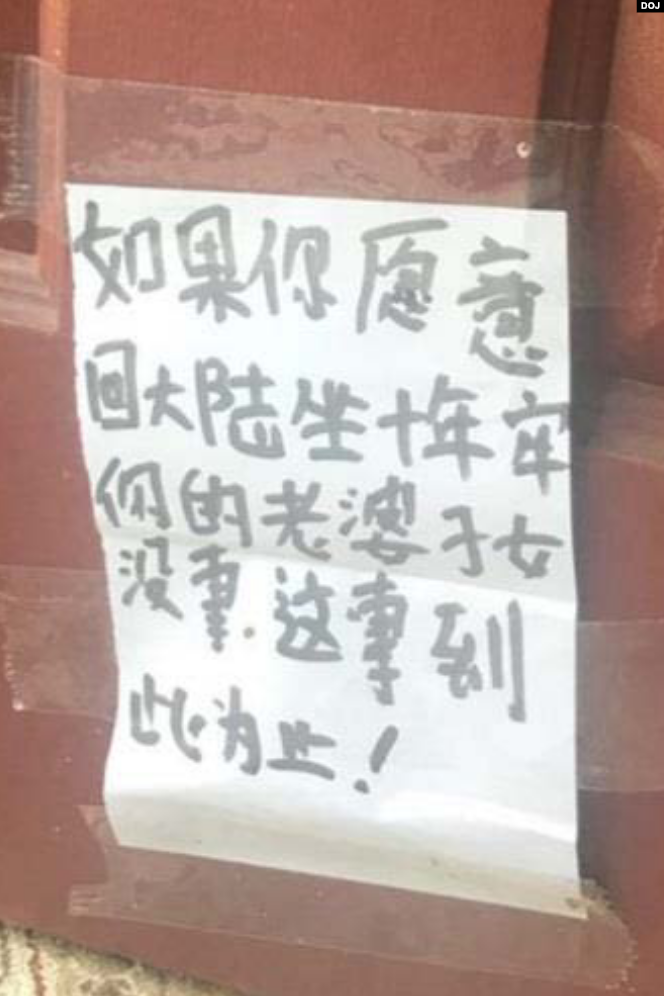 DOJ
如果你愿意
回大陆坐十年牢
你的老婆子女
没事.这事到
此为止!